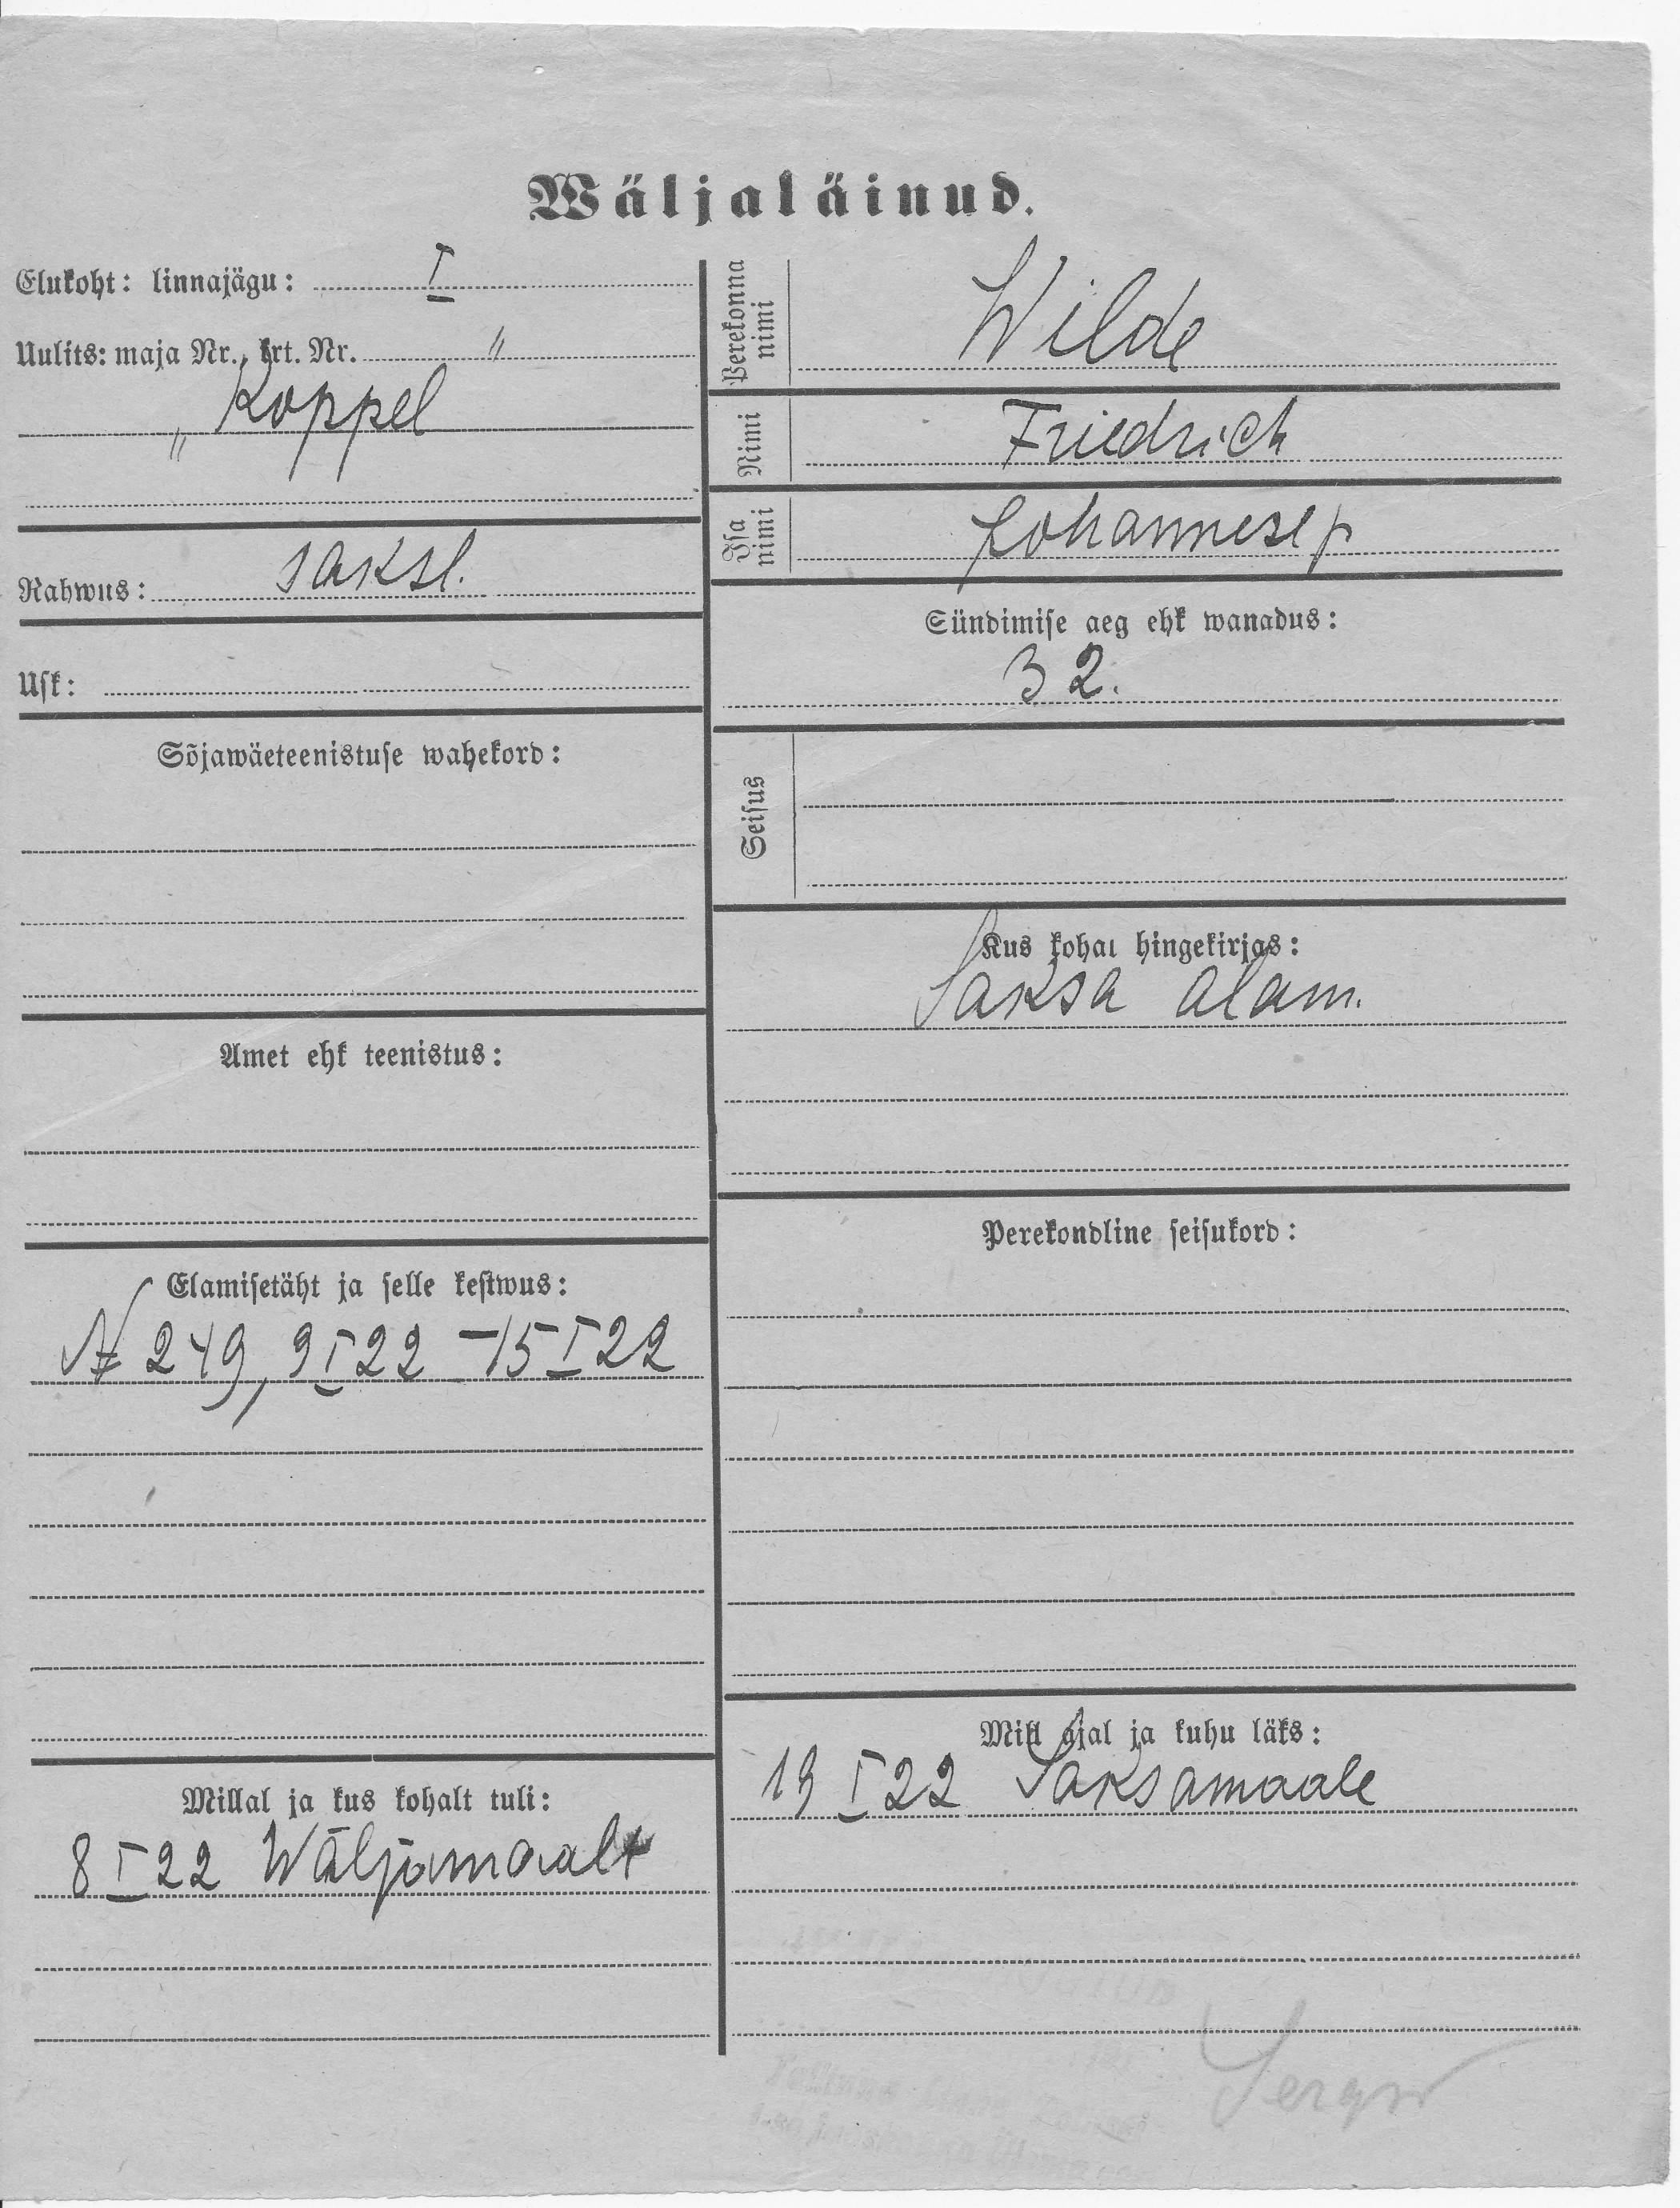 Wäljaläinud.
Elukoht: linnajägu: I
Uulits: maja Nr., krt. Nr. "
„ Koppel
Rahwus: saksl.
Usk:
Sõjawäeteenistuse wahekord:
Amet ehk teenistus:
Elamisetäht ja selle kestwus:
№ 249, 9 I 22 – 15 I 22
Millal ja kus kohalt tuli:
8 I 22 Wäljamaalt
Perekonna nimi
Wilde
Nimi
Friedrich
Isa nimi
Johannese p
Sündimise aeg ehk wanadus:
32.
Seisus
Kus kohal hingekirjas:
Saksa alam.
Perekondline seisukord:
Mill ajal ja kuhu läks:
19 I 22 Saksamaale